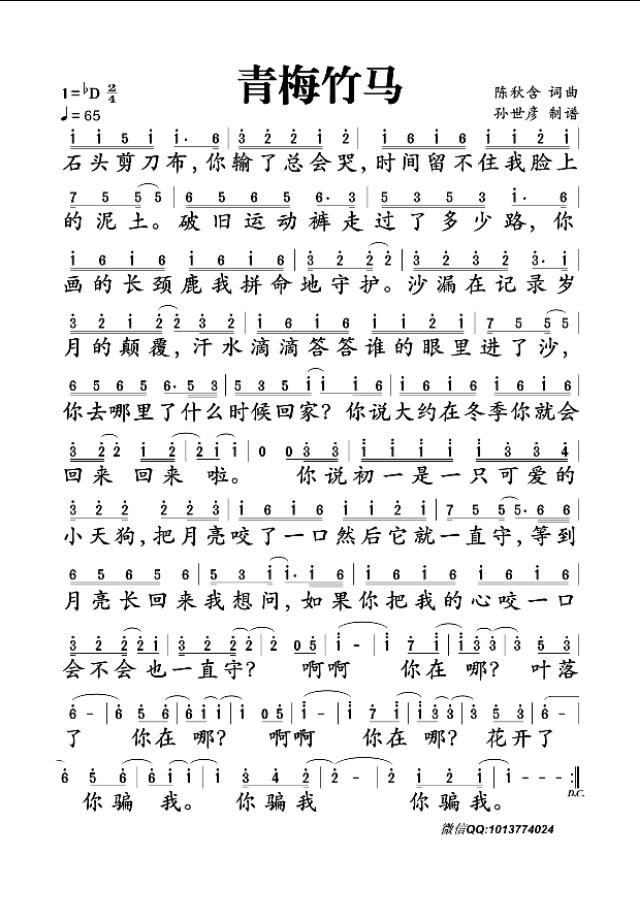 青梅竹马
1=♭D 2/4
♩=65
陈秋含 词曲
孙世彦 制谱
石头剪刀布，你输了总会哭，时间留不住我脸上
的泥土。破旧运动裤走过了多少路，你
画的长颈鹿我拼命地守护。沙漏在记录岁
月的颠覆，汗水滴滴答答谁的眼里进了沙，
你去哪里了什么时候回家？你说大约在冬季你就会
回来 回来 啦。 你说初一是一只可爱的
小天狗，把月亮咬了一口然后它就一直守，等到
月亮长回来我想问，如果你把我的心咬一口
会不会也一直守？ 啊啊 你在 哪？ 叶落
了 你在 哪？ 啊啊 你在 哪？ 花开了
你骗 我。 你骗我 你骗我。
D.C.
微信QQ:1013774024